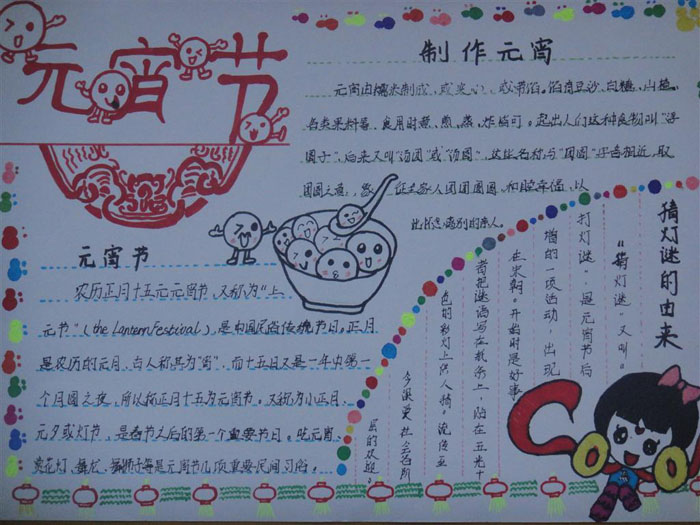 元宵节
制作元宵
元宵由糯米制成，或实心，或带馅。馅有豆沙、白糖、山楂、
各类果料等，食用时煮、煎、蒸、炸皆可。起出人们这种食物叫“浮
圆子”，后来又叫“汤团”或“汤圆”，这些名称与“团圆”字音相近，取
团圆之意，象征全家人团团圆圆，和睦幸福，以
此怀念离别的亲人。
元宵节
农历正月十五元元宵节，又称为“上
元节”（the Lantern Festival），是中国民俗传统节日。正月
是农历的元月，古人称其为“宵”，而十五日又是一年中第一
个月圆之夜，所以称正月十五为元宵节。又称为小正月、
元夕或灯节，是春节之后的第一个重要节日。吃元宵、
赏花灯、舞龙、舞狮子等是元宵节几项重要民间习俗。
猜灯谜的由来
“猜灯谜”又叫“
打灯谜”，是元宵节后
增的一项活动，出现
在宋朝。开始时是好事
者把谜语写在纸条上，贴在五光十
色的彩灯上供人猜。
今很受社会各阶
层的欢迎。